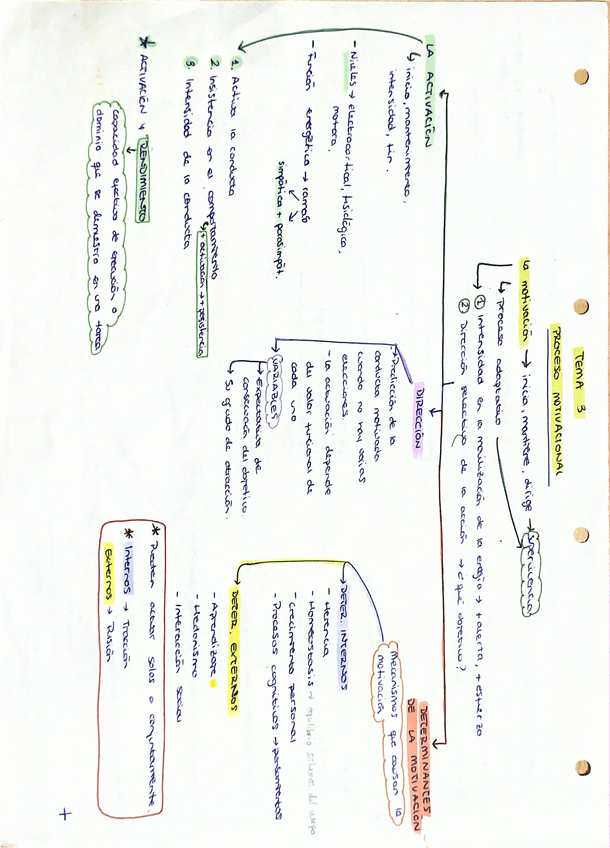 TEMA 3
PROCESO MOTIVACIONAL
La motivación → inicia, mantiene, dirige → supervivencia
↳ proceso adaptativo
① Intensidad en la movilización de la energía → + alerta, + esfuerzo
② Dirección selectiva de la acción → ¿qué objetivo?
LA ACTIVACIÓN
↳ inicio, mantenimiento,
intensidad, fin.
- Niveles → electrocortical, fisiológico,
motora.
- Función energética → ramas
simpática + parasimpát.
1. Activa la conducta
2. Insistencia en el comportamiento
↳ + activación → + persistencia
3. Intensidad de la conducta
* ACTIVACIÓN Y RENDIMIENTO
capacidad efectiva de ejecución o
dominio que se demuestra en una tarea
DIRECCIÓN
→ Predicción de la
conducta motivada
cuando no hay varias
elecciones
- La actuación depende
del valor funcional de
cada uno
VARIABLES
→ Expectativa de
consecución del objetivo
→ Su grado de atracción.
DETERMINANTES
DE LA MOTIVACIÓN
Mecanismos que causan la
motivación
DETER. INTERNOS
- Herencia
- Homeostasis → equilibrio del cuerpo
- Crecimiento personal
- Procesos cognitivos → pensamientos
DETER. EXTERNOS
- Aprendizaje
- Hedonismo
- Interacción social
* Pueden actuar solos o conjuntamente.
* Internos → Tracción
Externos → Pusión
+